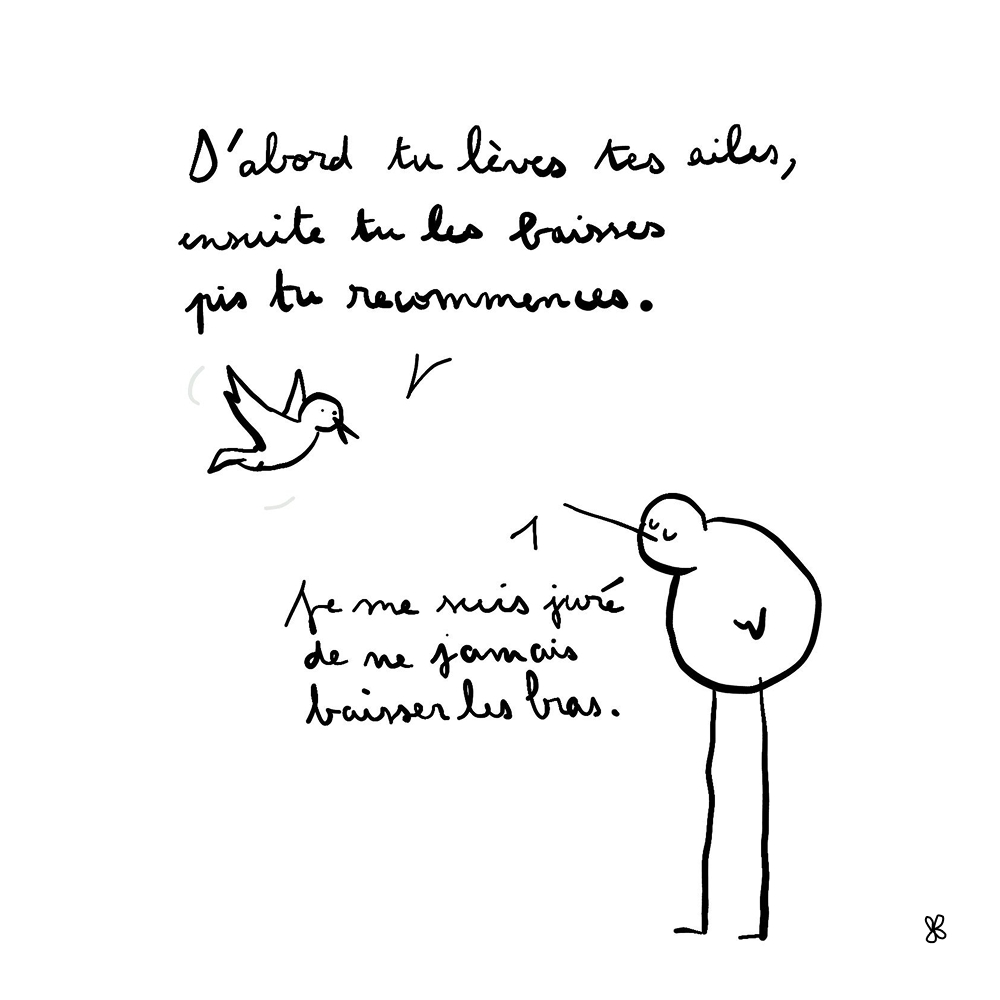 D'abord tu lèves tes ailes,
ensuite tu les baisses
pis tu recommences.
Je me suis juré
de ne jamais
baisser les bras.